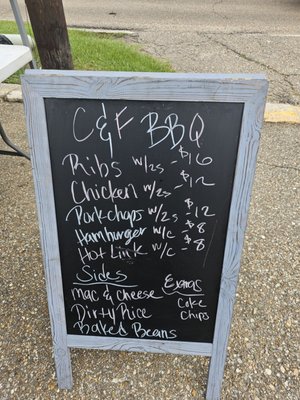 C&F BBQ
Ribs w/2s - $16
Chicken w/2s - $12
Pork-chops w/2s - $12
Hamburger w/c - $8
Hot Link w/c - $8
Sides
mac & cheese
Dirty Rice
Baked Beans
Extras
Coke
Chips